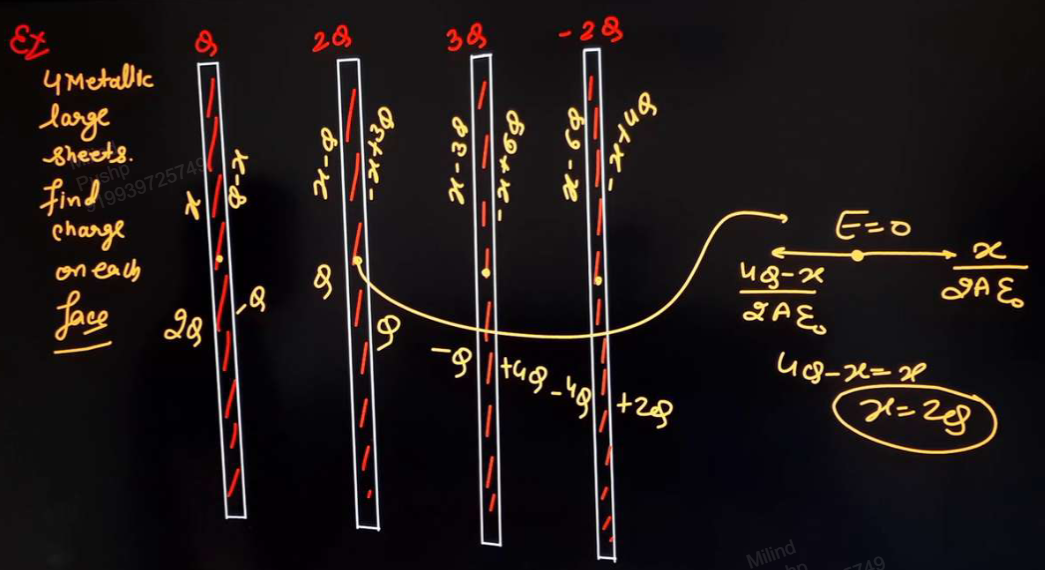 Ex
4 Metallic
large
sheets.
find
charge
on each
face
Q
2Q
3Q
-2Q
x
Q-x
x-Q
-x+3Q
x-3Q
-x+6Q
x-6Q
-x+4Q
2Q
-Q
Q
Q
-Q
+4Q
-4Q
+2Q
E=0
4Q-x
2Aε₀
x
2Aε₀
4Q-x=x
x=2Q
Milind
Pushp
919939725749
Milind